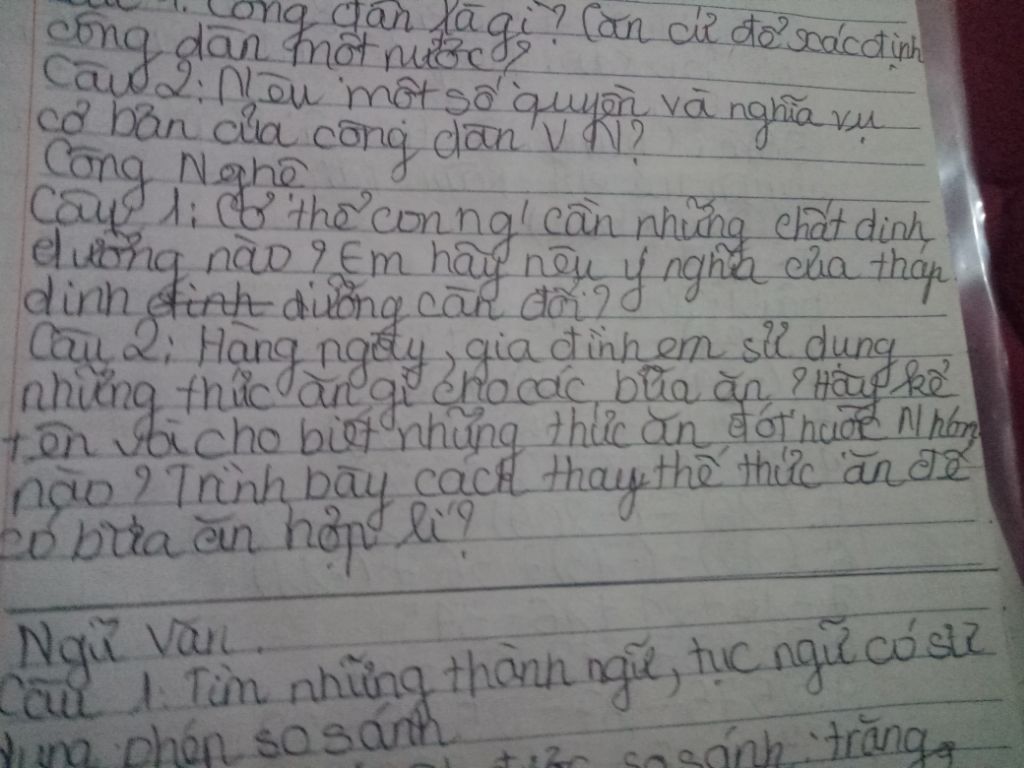 Câu 1. Công dân là gì? Căn cứ để xác định
công dân một nước?
Câu 2: Nêu một số quyền và nghĩa vụ
cơ bản của công dân VN?
Công Nghệ
Câu 1: Cơ thể con ng' cần những chất dinh
dưỡng nào? Em hãy nêu ý nghĩa của tháp
dinh dưỡng cân đối?
Câu 2: Hàng ngày, gia đình em sử dụng
những thức ăn gì cho các bữa ăn? Hãy kể
tên và cho biết những thức ăn đó thuộc Nhóm
nào? Trình bày cách thay thế thức ăn để
có bữa ăn hợp lí?
Ngữ Văn.
Câu 1. Tìm những thành ngữ, tục ngữ có sử
dụng phép so sánh
so sánh: trăng